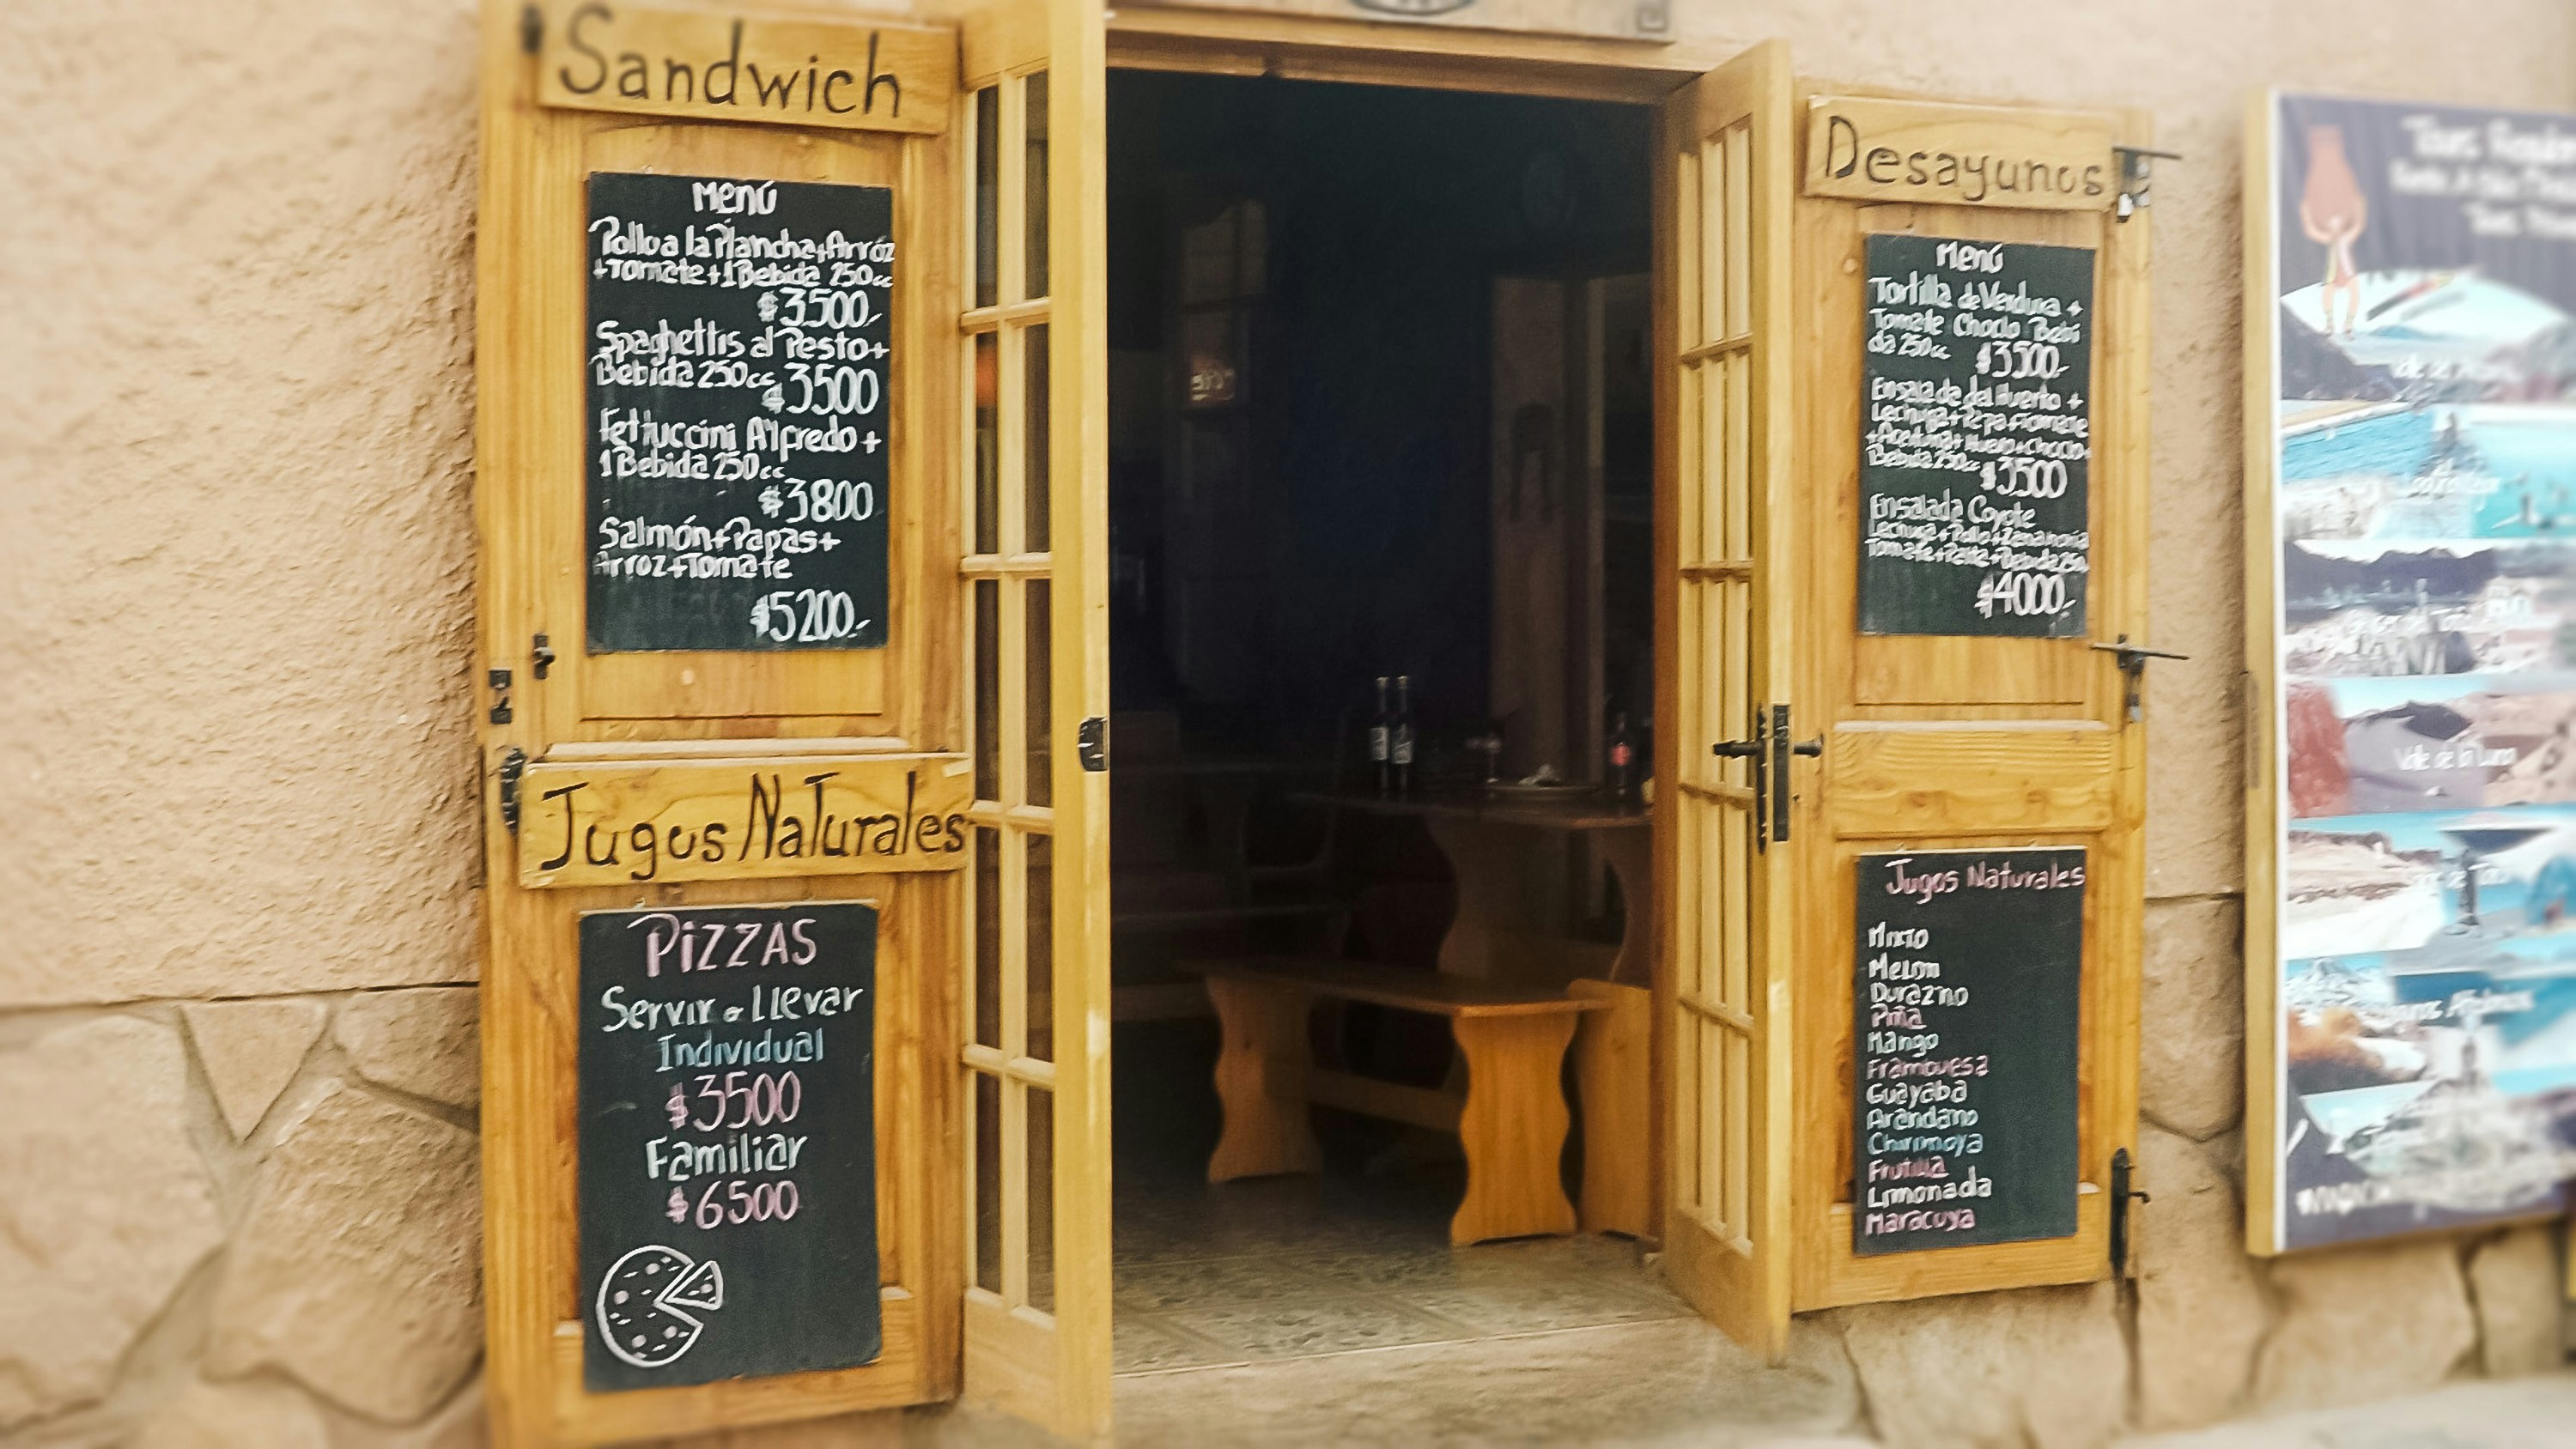 Sandwich
Menú
Pollo a la Plancha+Arróz
+Tomate+1Bebida 250cc
$3500.-
Spaghettis al Pesto+
Bebida 250cc
$3500
Fettuccini Alfredo+
1Bebida 250cc
$3800
Salmón+Papas+
Arroz+Tomate
$5200.-
Jugos NaTurales
PIZZAS
Servir o LLevar
Individual
$3500
Familiar
$6500
Desayunos
Menú
Tortilla de Verdura +
Tomate Choclo Bebi
da 250cc $3500.-
Ensalada del Huerto +
Lechuga+Papa+Tomate
+Aceituna+Huevo+Choclo+
Bebida 250cc $3500
Ensalada Coyote
Lechuga+Pollo+Zanahoria
Tomate+Palta+Bebida 250
$4000.-
Jugos Naturales
Mixto
Melon
Durazno
Piña
Mango
Frambuesa
Guayaba
Arandano
Chirimoya
Frutilla
Limonada
Maracuya
Tours
Valle de la Luna